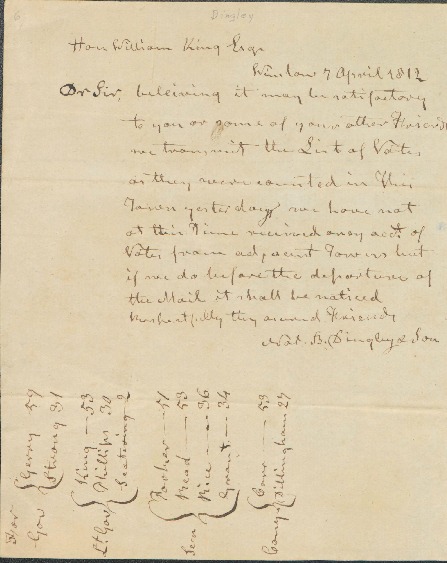 Dingley
Hon William King Esqr
Winslow 7 April 1812
Dr Sir, beleiving it may be satisfactory
to you or some of your other Friends
we transmit the List of Votes
as they were counted in This
Town yesterday we have not
at this Time received any acct of
Votes from adjacent Towns but
if we do before the departure of
the Mail it shall be noticed
Respectfully they assured Friends
Nat. B. Dingley & Son
For
Gov
Gerry 59
Strong 81
Lt Gov
King — 53
Phillips 30
Scatering 2
Sen
Parker — 51
Read — 53
Rice — 36
Grant — 34
Cony — 53
Dillingham 27